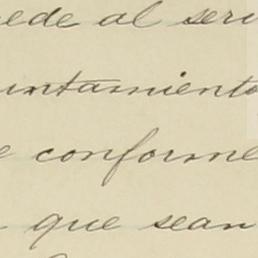 ede al seri
untamiento
e conforme
que sean